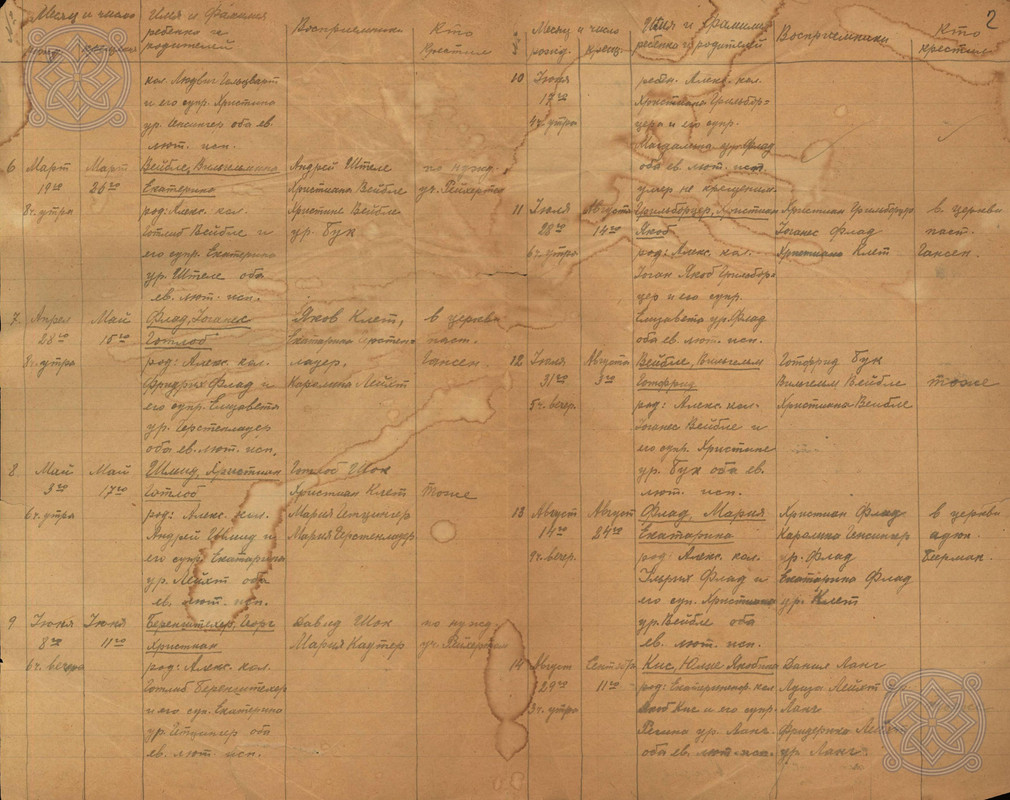 2
Месяц и число
рожд. крещения
Имя и Фамилия
ребенка и
родителей
Восприемники
Кто
крестил
кол. Людвиг Гольцварт
и его супр. Христина
ур. Инсингер оба ев.
лют. исп.
6 Март 19го 8 ч. утра
Март 26го
Вейбле, Вильгельмина
Екатерина
род: Алекс. кол.
Готлиб Вейбле и
его супр. Екатерина
ур. Штеле оба
ев. лют. исп.
Андрей Штеле
Христина Вейбле
Христине Вейбле
ур. Бук
по нужд.
уч. Рейертом
7. Апрел 28го 8 ч. утра
Май 15го
Флад, Иоганес
Готлоб
род: Алекс. кол.
Фридрих Флад и
его супр. Елизавета
ур. Герстенлауер
оба ев. лют. исп.
Яков Клет,
Екатерина
лауер.
Каролина Лейст
в церкви
паст.
Гансен.
8 Май 9го 6 ч. утра
Май 17го
Шмид, Христиан
Готлоб
род: Алекс. кол.
Андрей Шмид и
его супр. Екатерина
ур. Лейст оба
ев. лют. исп.
Готлоб Шок
Христиан Клет
Мария Итцингер
Мария Герстенлауер
тоже
9 Июня 8го 6 ч. вечера
Июня 11го
Беренштехер, Георг
Христиан
род: Алекс. кол.
Готлиб Беренштехер
и его суп. Екатерина
ур. Итцингер оба
ев. лют. исп.
Давид Шок
Мария Каутер
по нужд.
уч. Рейертом
Месяц и число
рожд. крещ.
Имя и фамилия
ребенка и родителей
Восприемники
Кто
крестил
10 Июня 17го 4 ч. утра
род. Алекс. кол.
Христиана Грильборцера и его супр.
Магдалина ур. Флад
оба ев. лют. исп.
умер не крещеным.
11 Июля 28го 6 ч. утра
Август 14го
Грильборцер, Христиан
Якоб
род: Алекс. кол.
Иоган Якоб Грильбор-
цер и его супр.
Елизавета ур. Флад
оба ев. лют. исп.
Христиан Грильборцер
Иоганес Флад
Христиана Клет
в церкви
паст.
Гансен.
12 Июля 31го 5 ч. вечер.
Август 3го
Вейбле, Вильгельм
Готфрид
род: Алекс. кол.
Иоганес Вейбле и
его супр. Христине
ур. Бук оба ев.
лют. исп.
Готфрид Бук
Вильгельм Вейбле
Христина Вейбле
тоже
13 Август 14го 9 ч. вечер.
Август 24го
Флад, Мария
Екатарина
род: Алекс. кол.
Ульрих Флад и
его суп. Христиана
ур. Вейбле оба
ев. лют. исп.
Христиан Флад
Каролина Инсингер
ур. Флад
Екатарина Флад
ур. Клет
в церкви
адюн.
Бирман.
14 Август 29го 3 ч. утра
Сентябр 11го
Кис, Юлие Якобина
род: Екатариненск. кол.
Якоб Кис и его супр.
Регина ур. Ланг.
оба ев. лют. исп.
Данил Ланг
Луиза Лейст ур.
Ланг
Фридерика Лейст
ур. Ланг